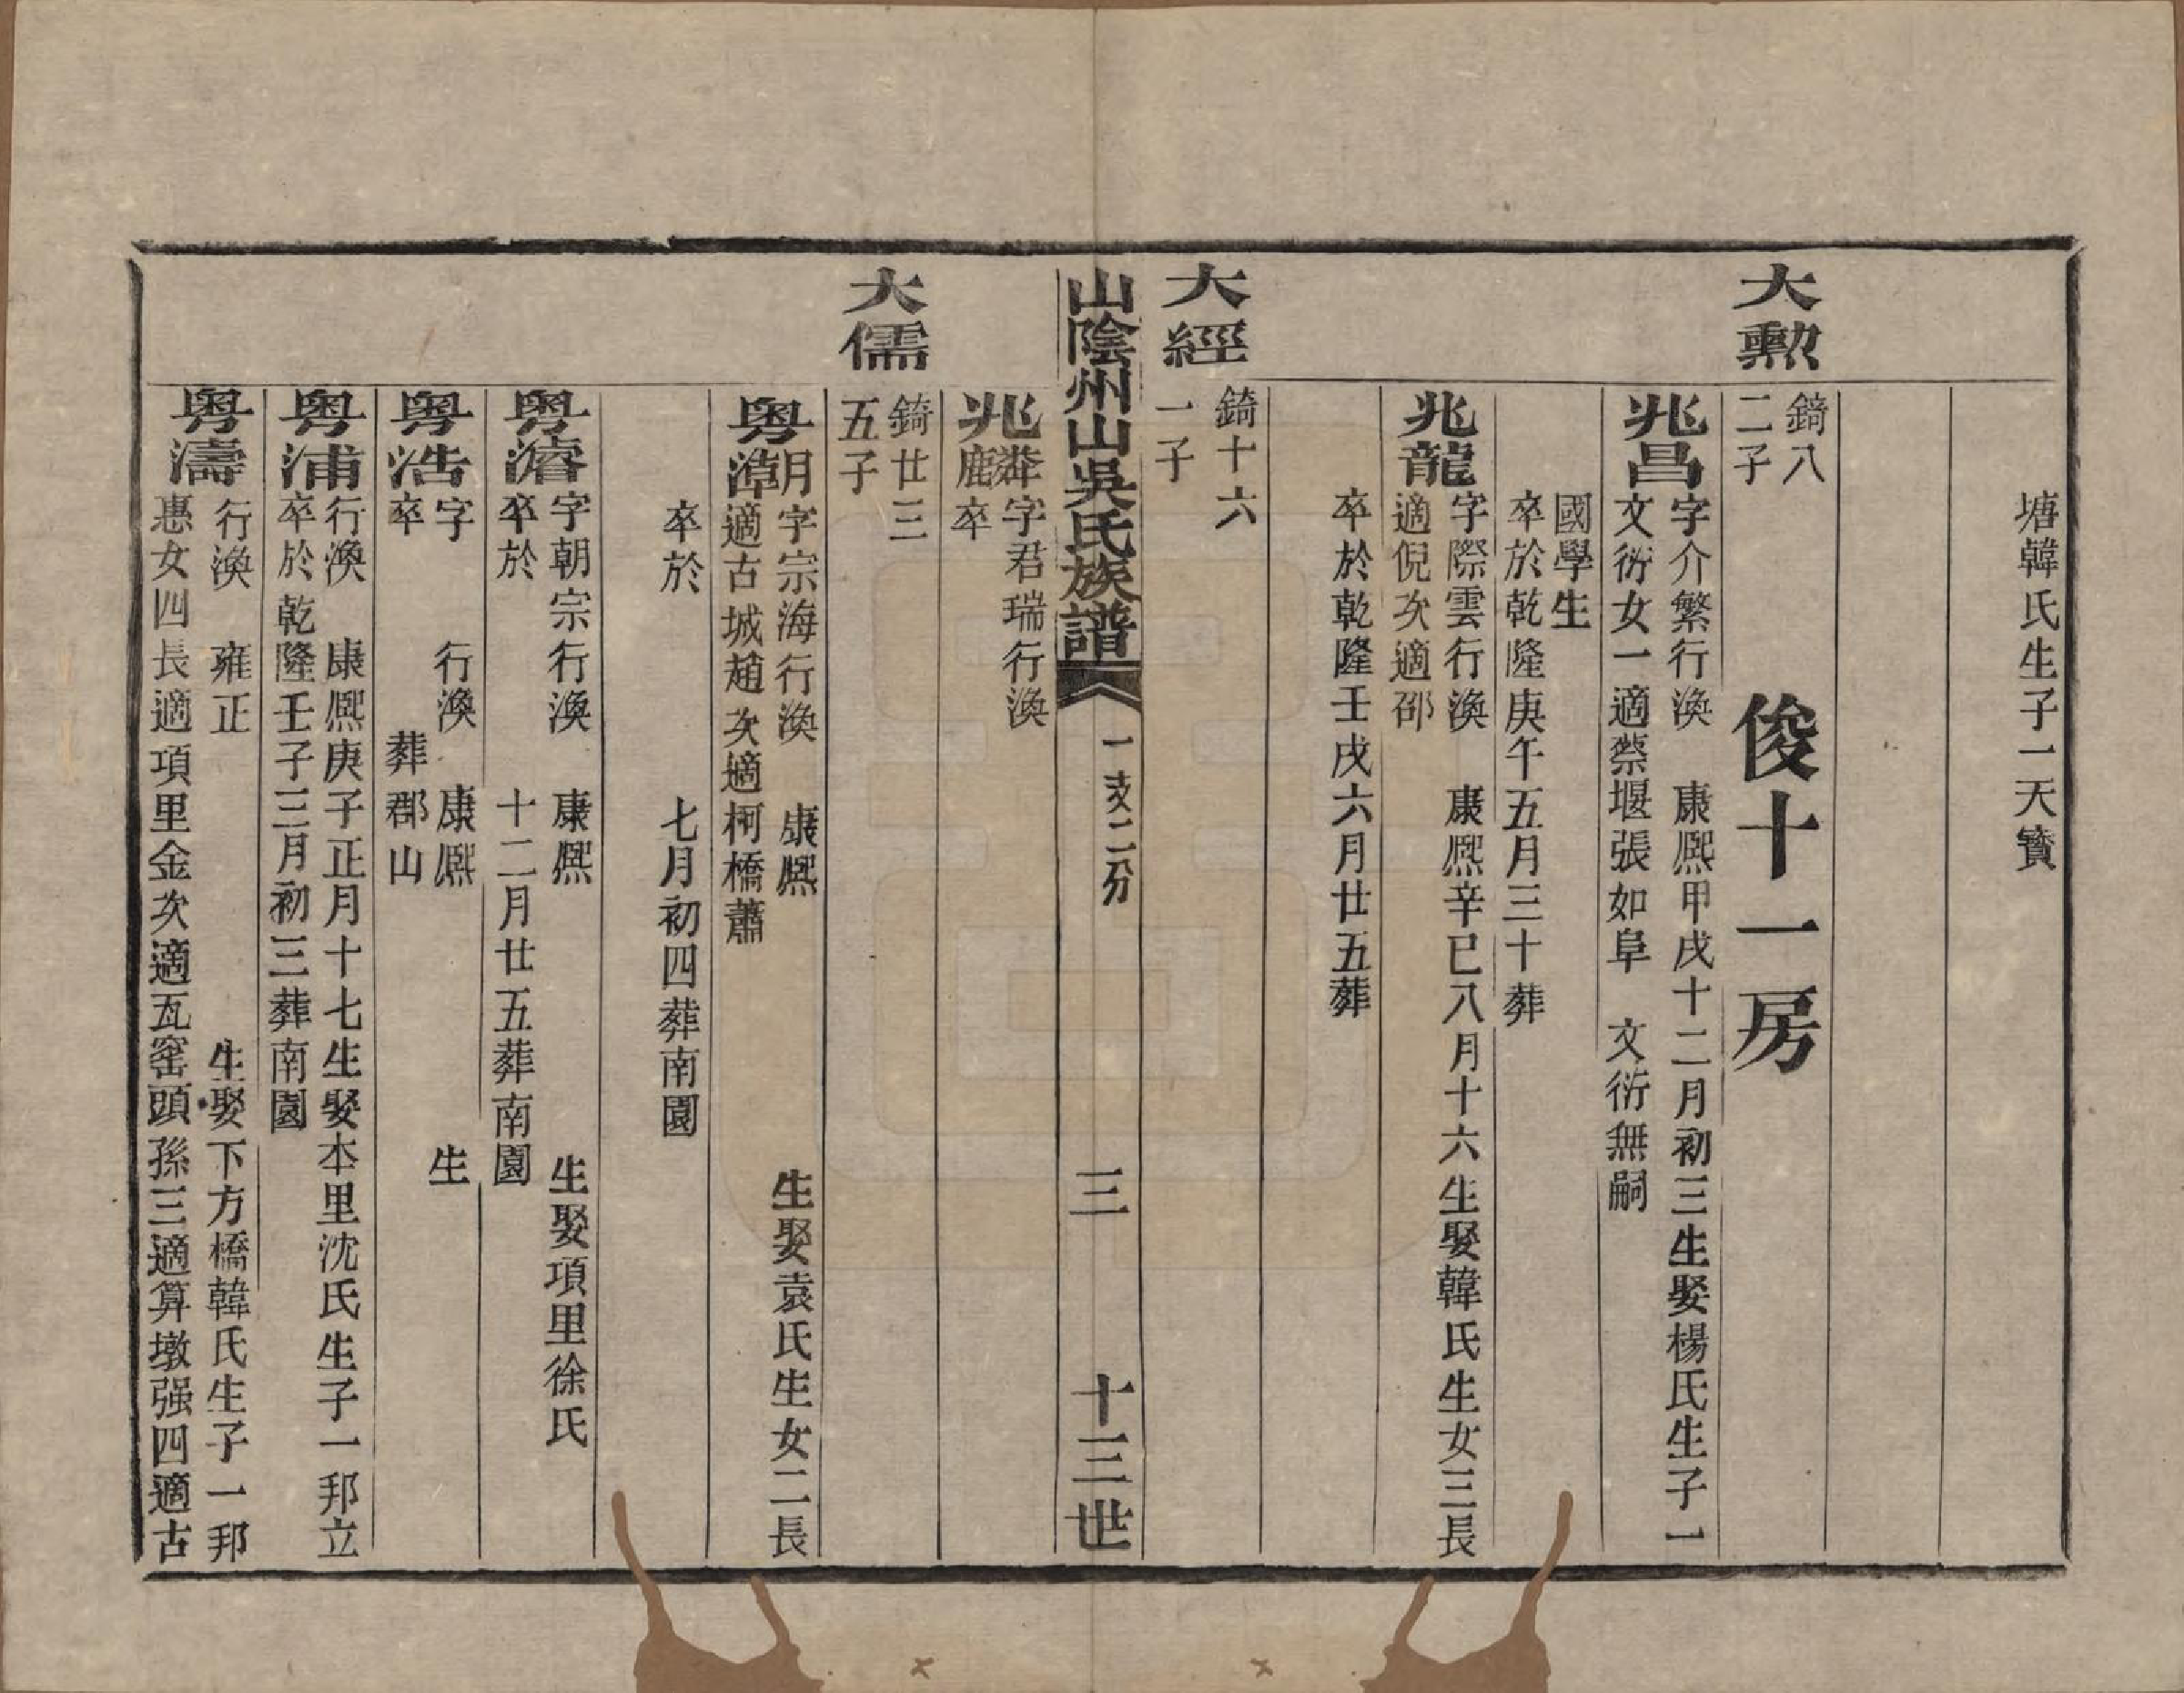 塘韓氏生子一天賛
俊十一房
大勲
錡八
二子
兆昌
字介繁行渙 康熙甲戌十二月初三生娶楊氏生子一
文衍女一適蔡堰張如阜 文衍無嗣
國學生
卒於乾隆庚午五月三十葬
兆龍
字際雲行渙 康熙辛巳八月十六生娶韓氏生女三長
適倪次適邵
卒於乾隆壬戌六月廿五葬
大經
錡十六
一子
山陰州山吳氏族譜
一支二分
三
十三世
兆
字君瑞行渙
卒
大儒
錡廿三
五子
粤
字宗海行渙 康熙 生娶袁氏生女二長
適古城趙次適柯橋蕭
卒於 七月初四葬南園
粤濬
字朝宗行渙 康熙 生娶項里徐氏
卒於 十二月廿五葬南園
粤浩
字 行渙 康熙 生
卒 葬郡山
粤浦
行渙 康熙庚子正月十七生娶本里沈氏生子一邦立
卒於乾隆壬子三月初三葬南園
粤濤
行渙 雍正 生娶下方橋韓氏生子一邦
惠女四長適項里金次適瓦窑頭孫三適算墩强四適古